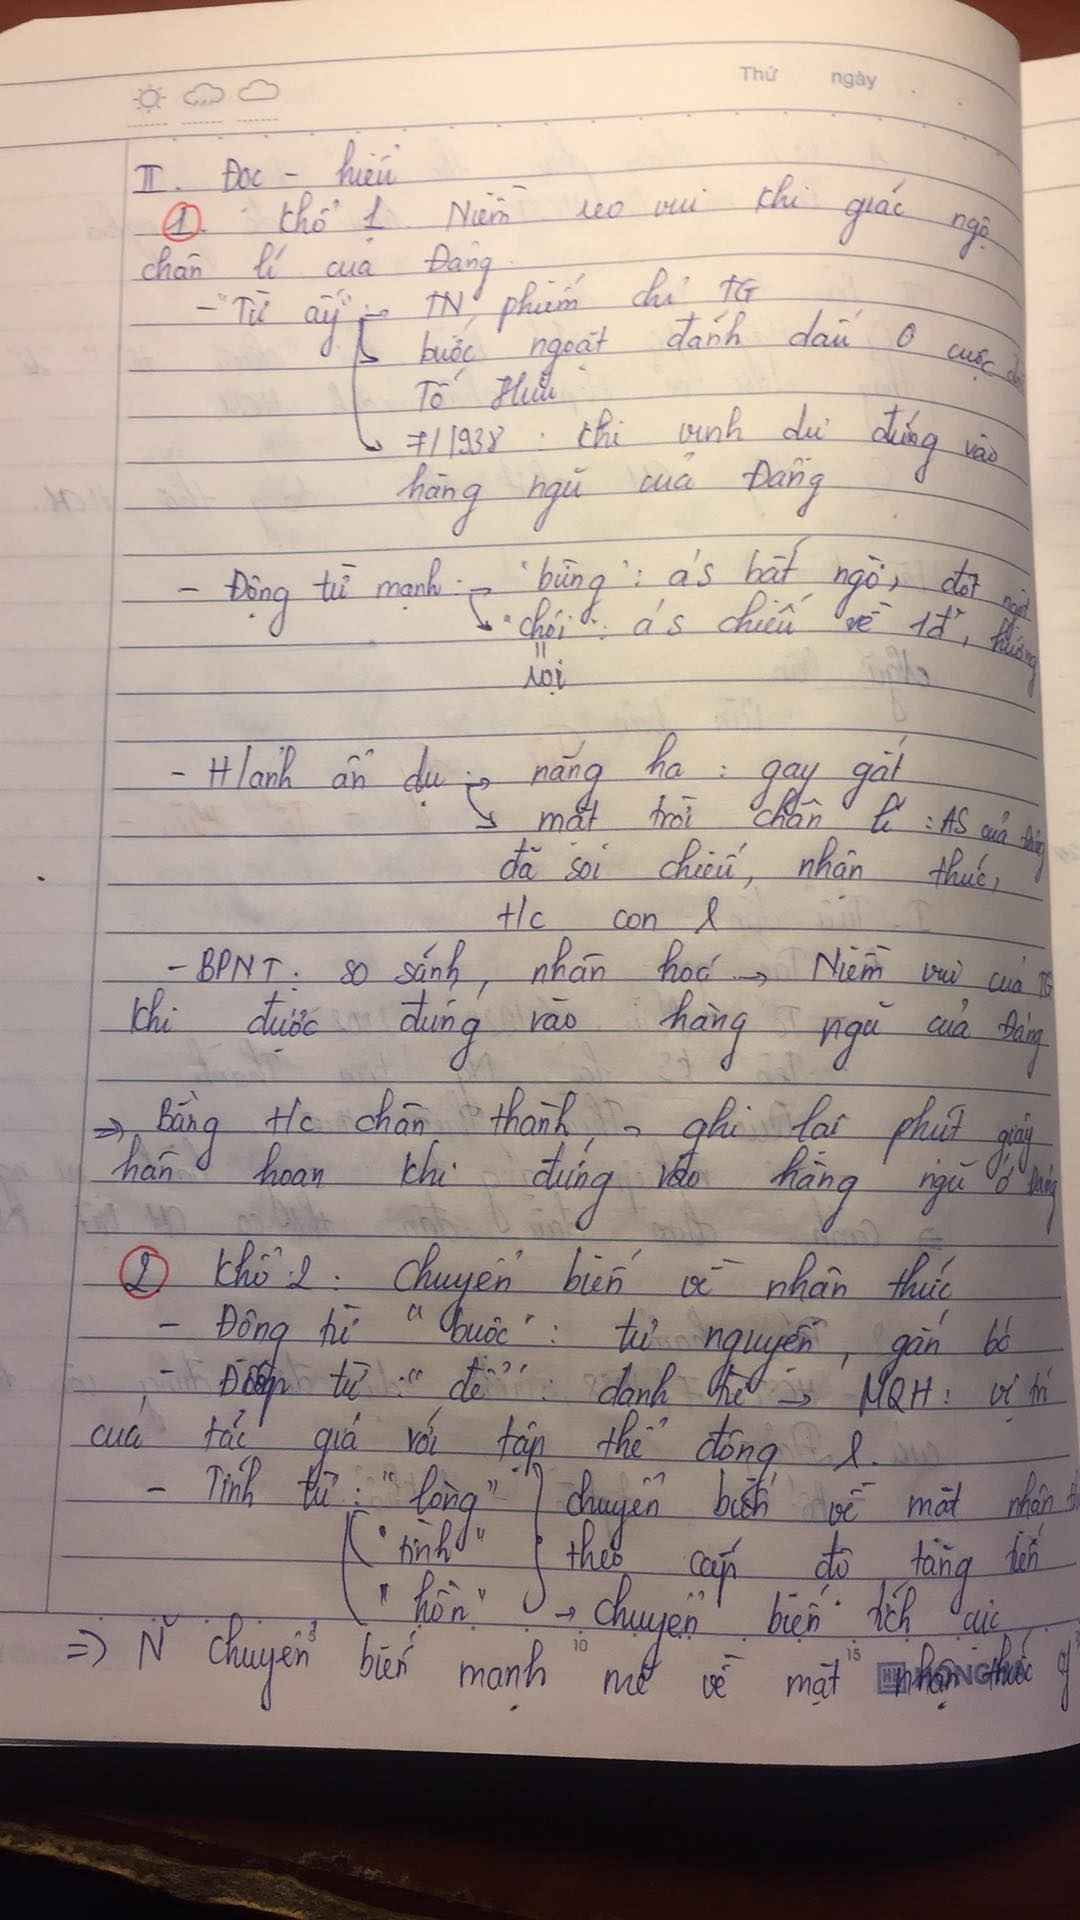 Thứ ngày
II. Đọc - hiểu
1. Khổ 1. Niềm reo vui khi giác ngộ
chân lí của Đảng
- "Từ ấy" → TN phiếm chỉ TG
↳ bước ngoặt đánh dấu ở cuộc đời
Tố Hữu
↳ 7/1938 : khi vinh dự đứng vào
hàng ngũ của Đảng
- Động từ mạnh : → "bừng" : á/s bất ngờ, đột ngột
↳ "chói" : á/s chiếu về 1 đ', hướng
||
rọi
- H/ảnh ẩn dụ : → nắng hạ : gay gắt
↳ mặt trời chân lí : AS của Đảng
đã soi chiếu, nhận thức,
t/c con
- BPNT : so sánh, nhân hoá → Niềm vui của TG
khi được đứng vào hàng ngũ của Đảng
⇒ Bằng t/c chân thành, → ghi lại phút giây
hân hoan khi đứng vào hàng ngũ ở Đảng
2 Khổ 2 : Chuyển biến về nhận thức
- Động từ "buộc" : tự nguyện, gắn bó
- Điệp từ : "để" : danh từ → MQH : vị trí
của tác giả với tập thể đông
- Tính từ : "lòng" } chuyển biến về mặt nhận
"tình" theo cấp độ tăng tiến
"hồn" → chuyển biến tích cực
=> N~ chuyển biến mạnh mẽ về mặt nhận thức
5 10 15
HONG HA